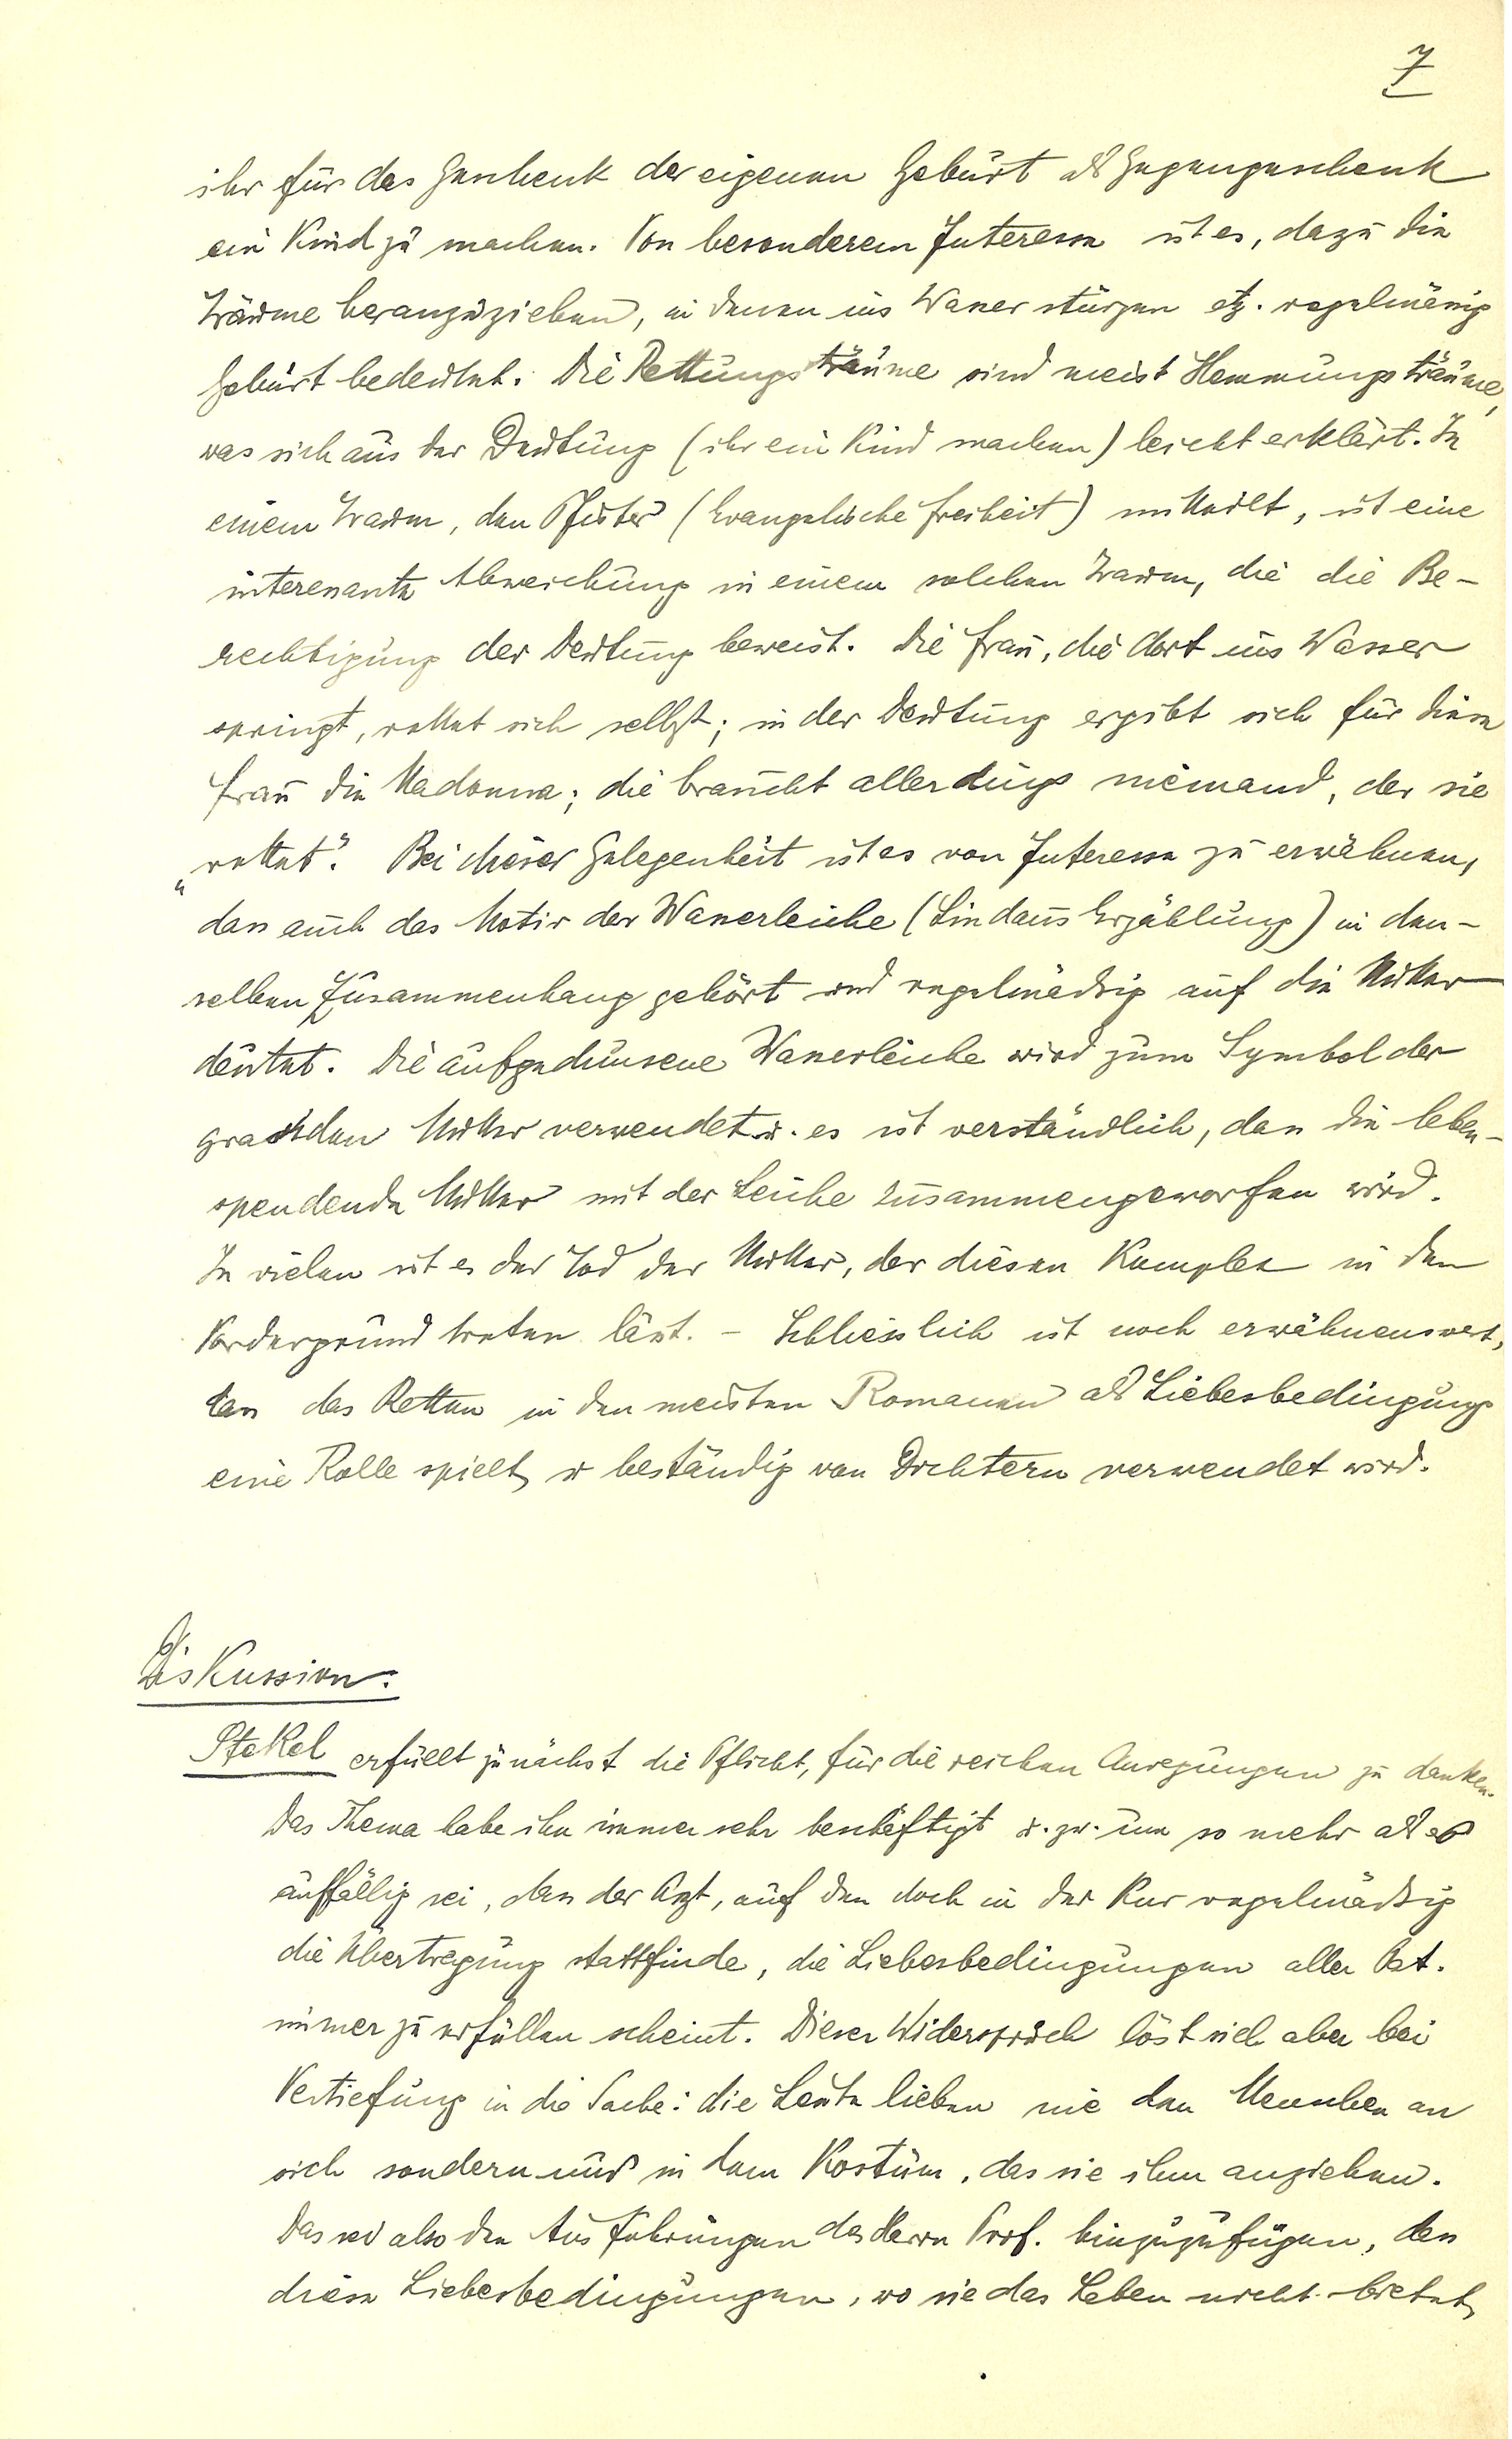 7
ihr für das Geschenk der eigenen Geburt als Gegengeschenk
ein Kind zu machen. Von besonderem Interesse ist es, dazu die
Träume heranzuziehen, in denen ins Wasser stürzen etz. regelmässig
Geburt bedeutet. Die Rettungsträume sind meist Hemmungsträume,
was sich aus der Deutung (ihr ein Kind machen) leicht erklärt. In
einem Traum, den Pfister (Evangelische Freiheit) mitteilt, ist eine
interessante Abweichung in einem solchen Traum, die die Be-
rechtigung der Deutung beweist. Die Frau, die dort ins Wasser
springt, rettet sich selbst; in der Deutung ergibt sich für diese
Frau die Madonna; die braucht allerdings niemand, der sie
„rettet“. Bei dieser Gelegenheit ist es von Interesse zu erwähnen,
dass auch das Motiv der Wasserleiche (Lindaus Erzählung) in den-
selben Zusammenhang gehört und regelmässig auf die Mutter
deutet. Die aufgedunsene Wasserleiche wird zum Symbol der
graviden Mutter verwendet u. es ist verständlich, dass die leben-
spendende Mutter mit der Leiche zusammengeworfen wird.
In vielen ist es der Tod der Mutter, der diesen Komplex in den
Vordergrund treten lässt. – Schliesslich ist noch erwähnenswert,
dass das Retten in den meisten Romanen als Liebesbedingung
eine Rolle spielt u beständig von Dichtern verwendet wird.
Diskussion:
Stekel erfüllt zunächst die Pflicht, für die reichen Anregungen zu danken.
Das Thema habe ihn immer sehr beschäftigt u. zw. um so mehr als es
auffällig sei, dass der Arzt, auf den doch in der Kur regelmässig
die Übertragung stattfinde, die Liebesbedingungen aller Pat.
immer zu erfüllen scheint. Dieser Widerspruch löst sich aber bei
Vertiefung in die Sache: die Leute lieben nie den Menschen an
sich sondern nur in dem Kostüm, das sie ihm anziehen.
Das sei also den Ausführungen des Herrn Prof. hinzuzufügen, dass
diese Liebesbedingungen, wo sie das Leben nicht bietet,